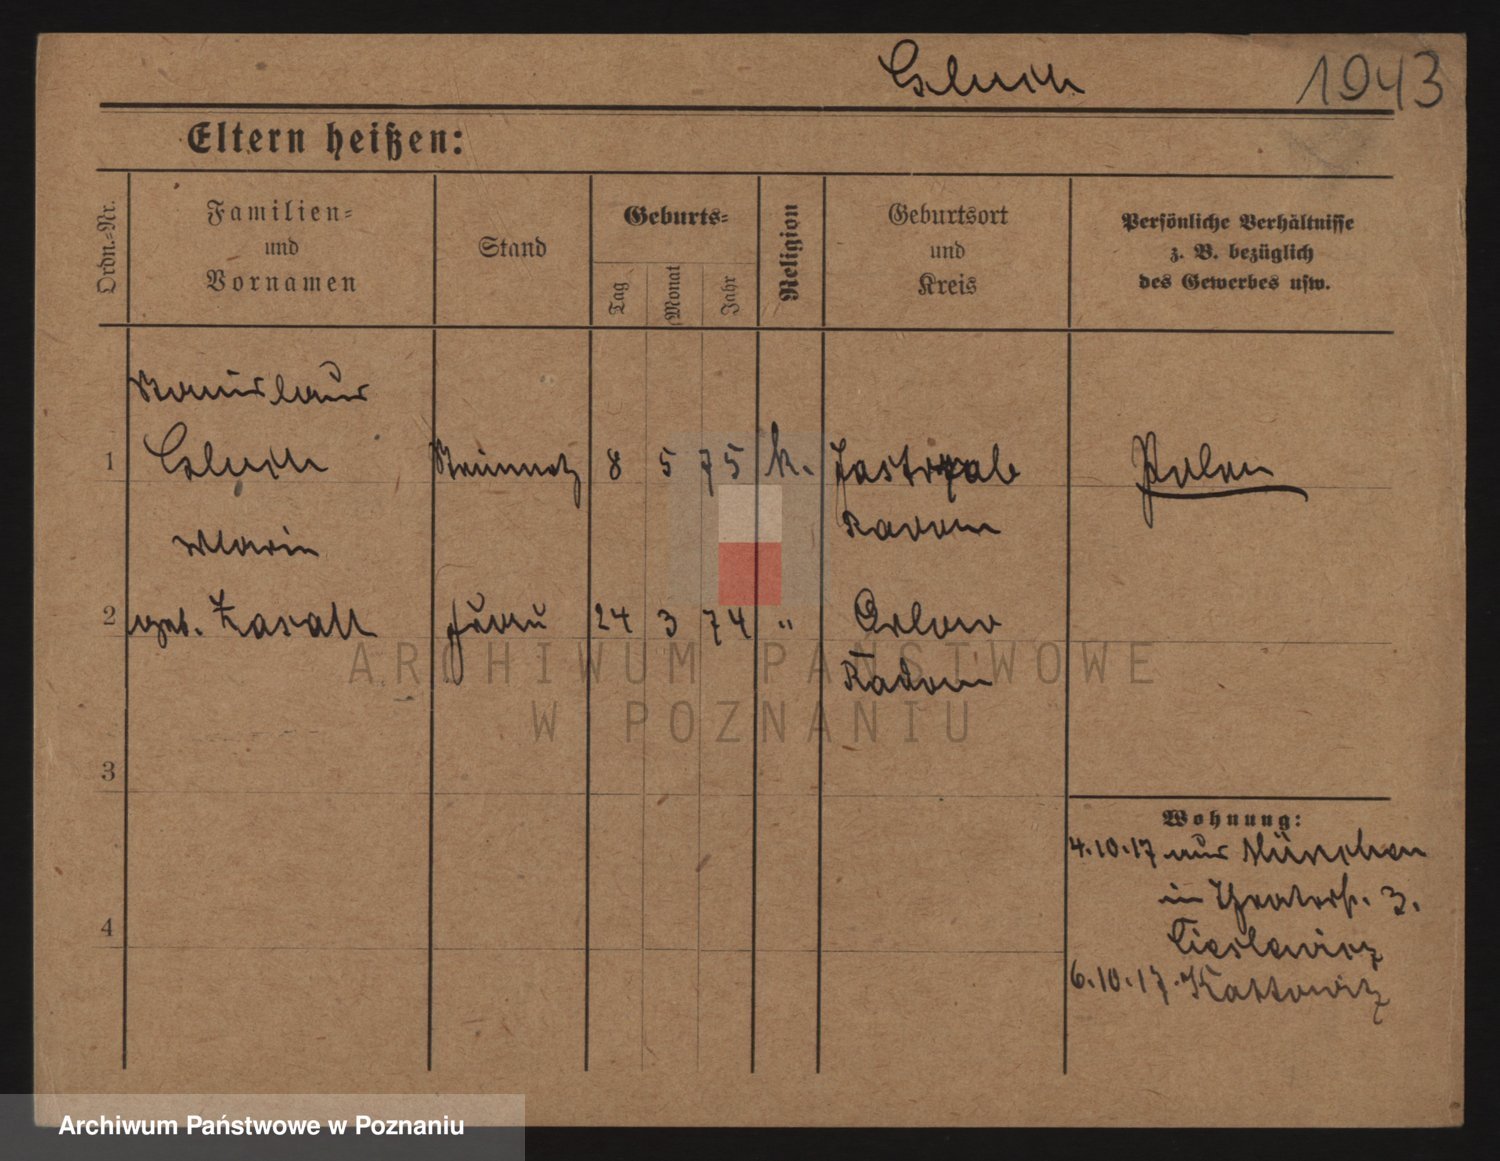 1943
Eltern heißen:
Ordn.-Nr.
Familien-
und
Vornamen
Stand
Geburts-
Tag
Monat
Jahr
Religion
Geburtsort
und
Kreis
Persönliche Verhältnisse
z. B. bezüglich
des Gewerbes usw.
Stanislaus
1 Steinmetz 8 5 75 k. Jastrzab Polen
Radom
Maria
2 geb. Frau 24 3 74 " Orlow
Radom
3
4
Wohnung:
4.10.17 aus München
in Theaterstr. 3.
Cieslewicz
6.10.17. Kattowitz
ARCHIWUM PAŃSTWOWE
W POZNANIU
Archiwum Państwowe w Poznaniu